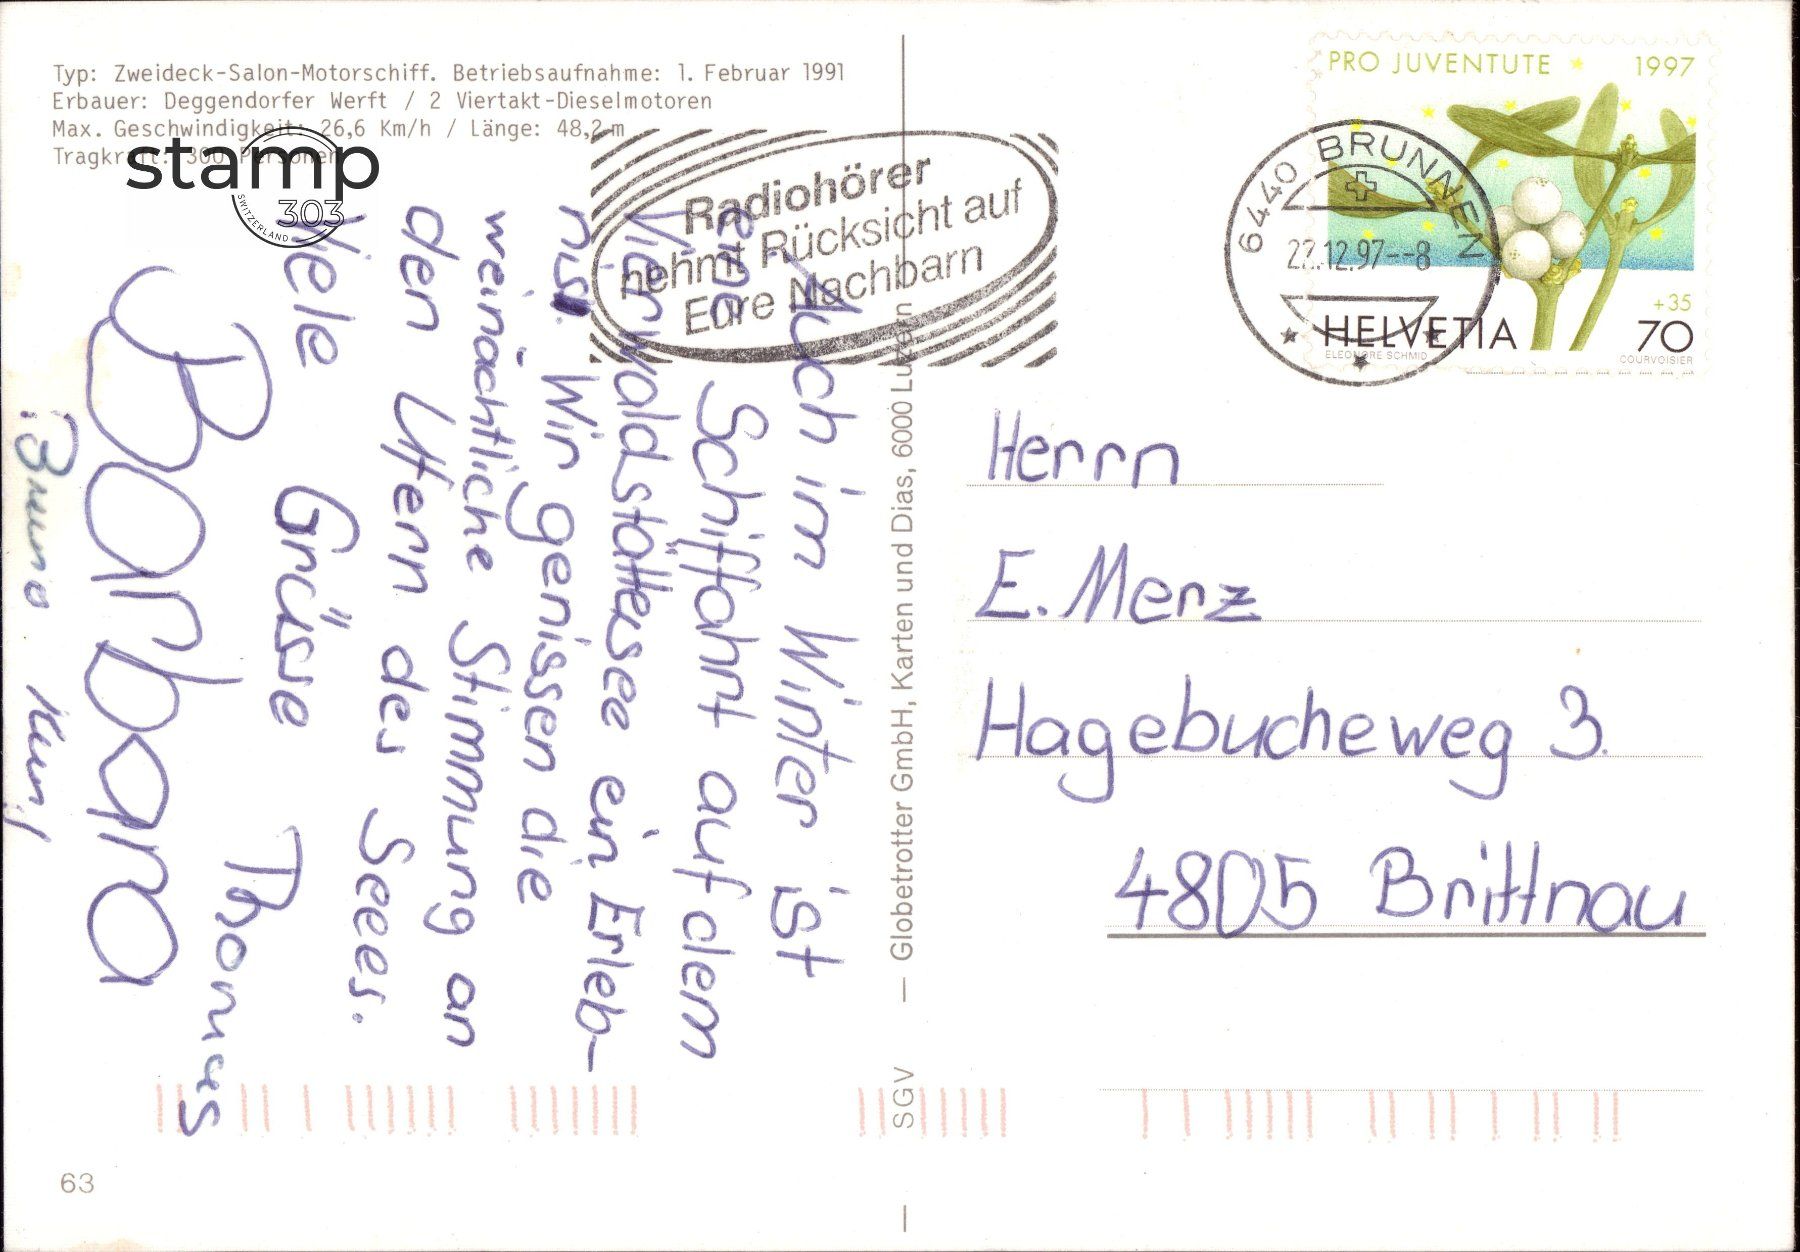 Typ: Zweideck-Salon-Motorschiff. Betriebsaufnahme: 1. Februar 1991
Erbauer: Deggendorfer Werft / 2 Viertakt-Dieselmotoren
Max. Geschwindigkeit: 26,6 Km/h / Länge: 48,2 m
Tragkraft: 300 Personen
stamp
303
SWITZERLAND
Radiohörer
nehmt Rücksicht auf
Eure Nachbarn
PRO JUVENTUTE 1997
6440 BRUNNEN
22.12.97--8
+35
HELVETIA 70
ELEONORE SCHMID COURVOISIER
Auch im Winter ist
eine Schiffahrt auf dem
Vierwaldstättesee ein Erleb-
nis. Wir genissen die
weinächtliche Stimmung an
den Ufern des Seees.
Viele Grüsse
Thomas
Barbara
Bruno
Herrn
E. Merz
Hagebucheweg 3.
4805 Brittnau
SGV — Globetrotter GmbH, Karten und Dias, 6000 Luzern
63